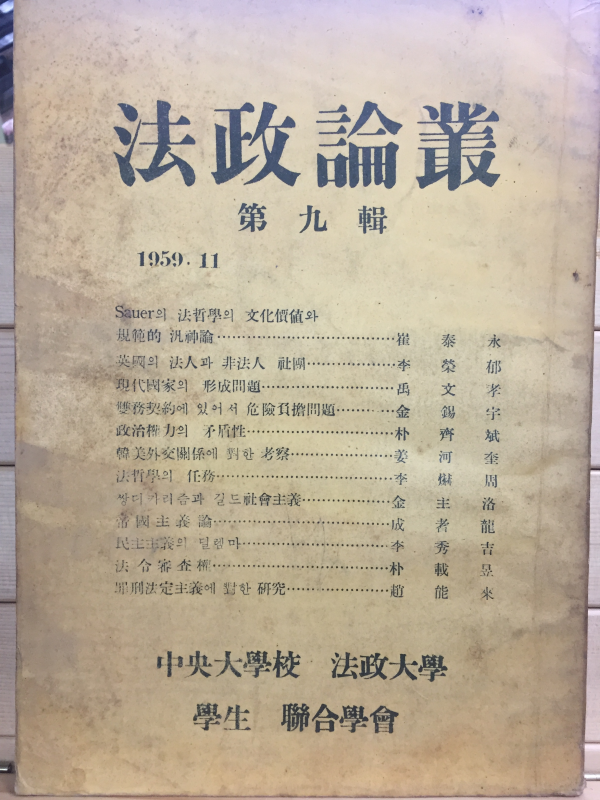 法政論叢
第九輯
1959. 11
Sauer의 法哲學의 文化價値와
規範的 汎神論……………………………崔泰永
英國의 法人과 非法人 社團………………李榮郁
現代國家의 形成問題………………………禹文孝
雙務契約에 있어서 危險負擔問題…………金錫宇
政治權力의 矛盾性…………………………朴齊斌
韓美外交關係에 對한 考察…………………姜河奎
法哲學의 任務………………………………李周
쌍디카리즘과 길드社會主義………………金主洛
帝國主義論…………………………………成者龍
民主主義의 딜렘마…………………………李秀吉
法令審査權…………………………………朴載昱
罪刑法定主義에 對한 研究…………………趙能來
中央大學校 法政大學
學生 聯合學會